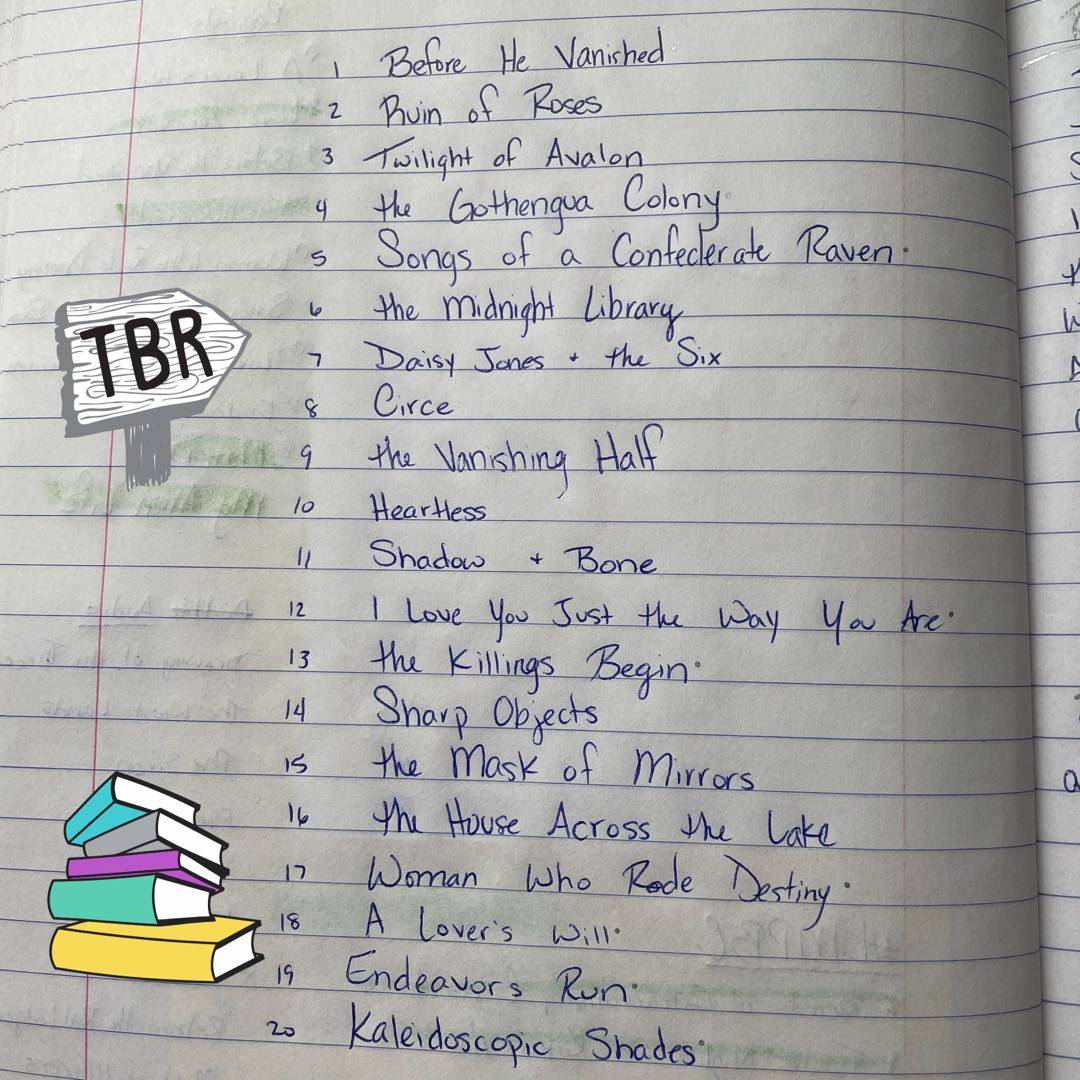 1 Before He Vanished
2 Ruin of Roses
3 Twilight of Avalon
4 the Gothengua Colony
5 Songs of a Confederate Raven.
6 the Midnight Library
TBR
7 Daisy Jones + the Six
8 Circe
9 the Vanishing Half
10 Heartless
11 Shadow + Bone
12 I Love You Just the Way You Are.
13 the Killings Begin.
14 Sharp Objects
15 the Mask of Mirrors
16 the House Across the Lake
17 Woman Who Rode Destiny.
18 A Lover's Will.
19 Endeavors Run.
20 Kaleidoscopic Shades.